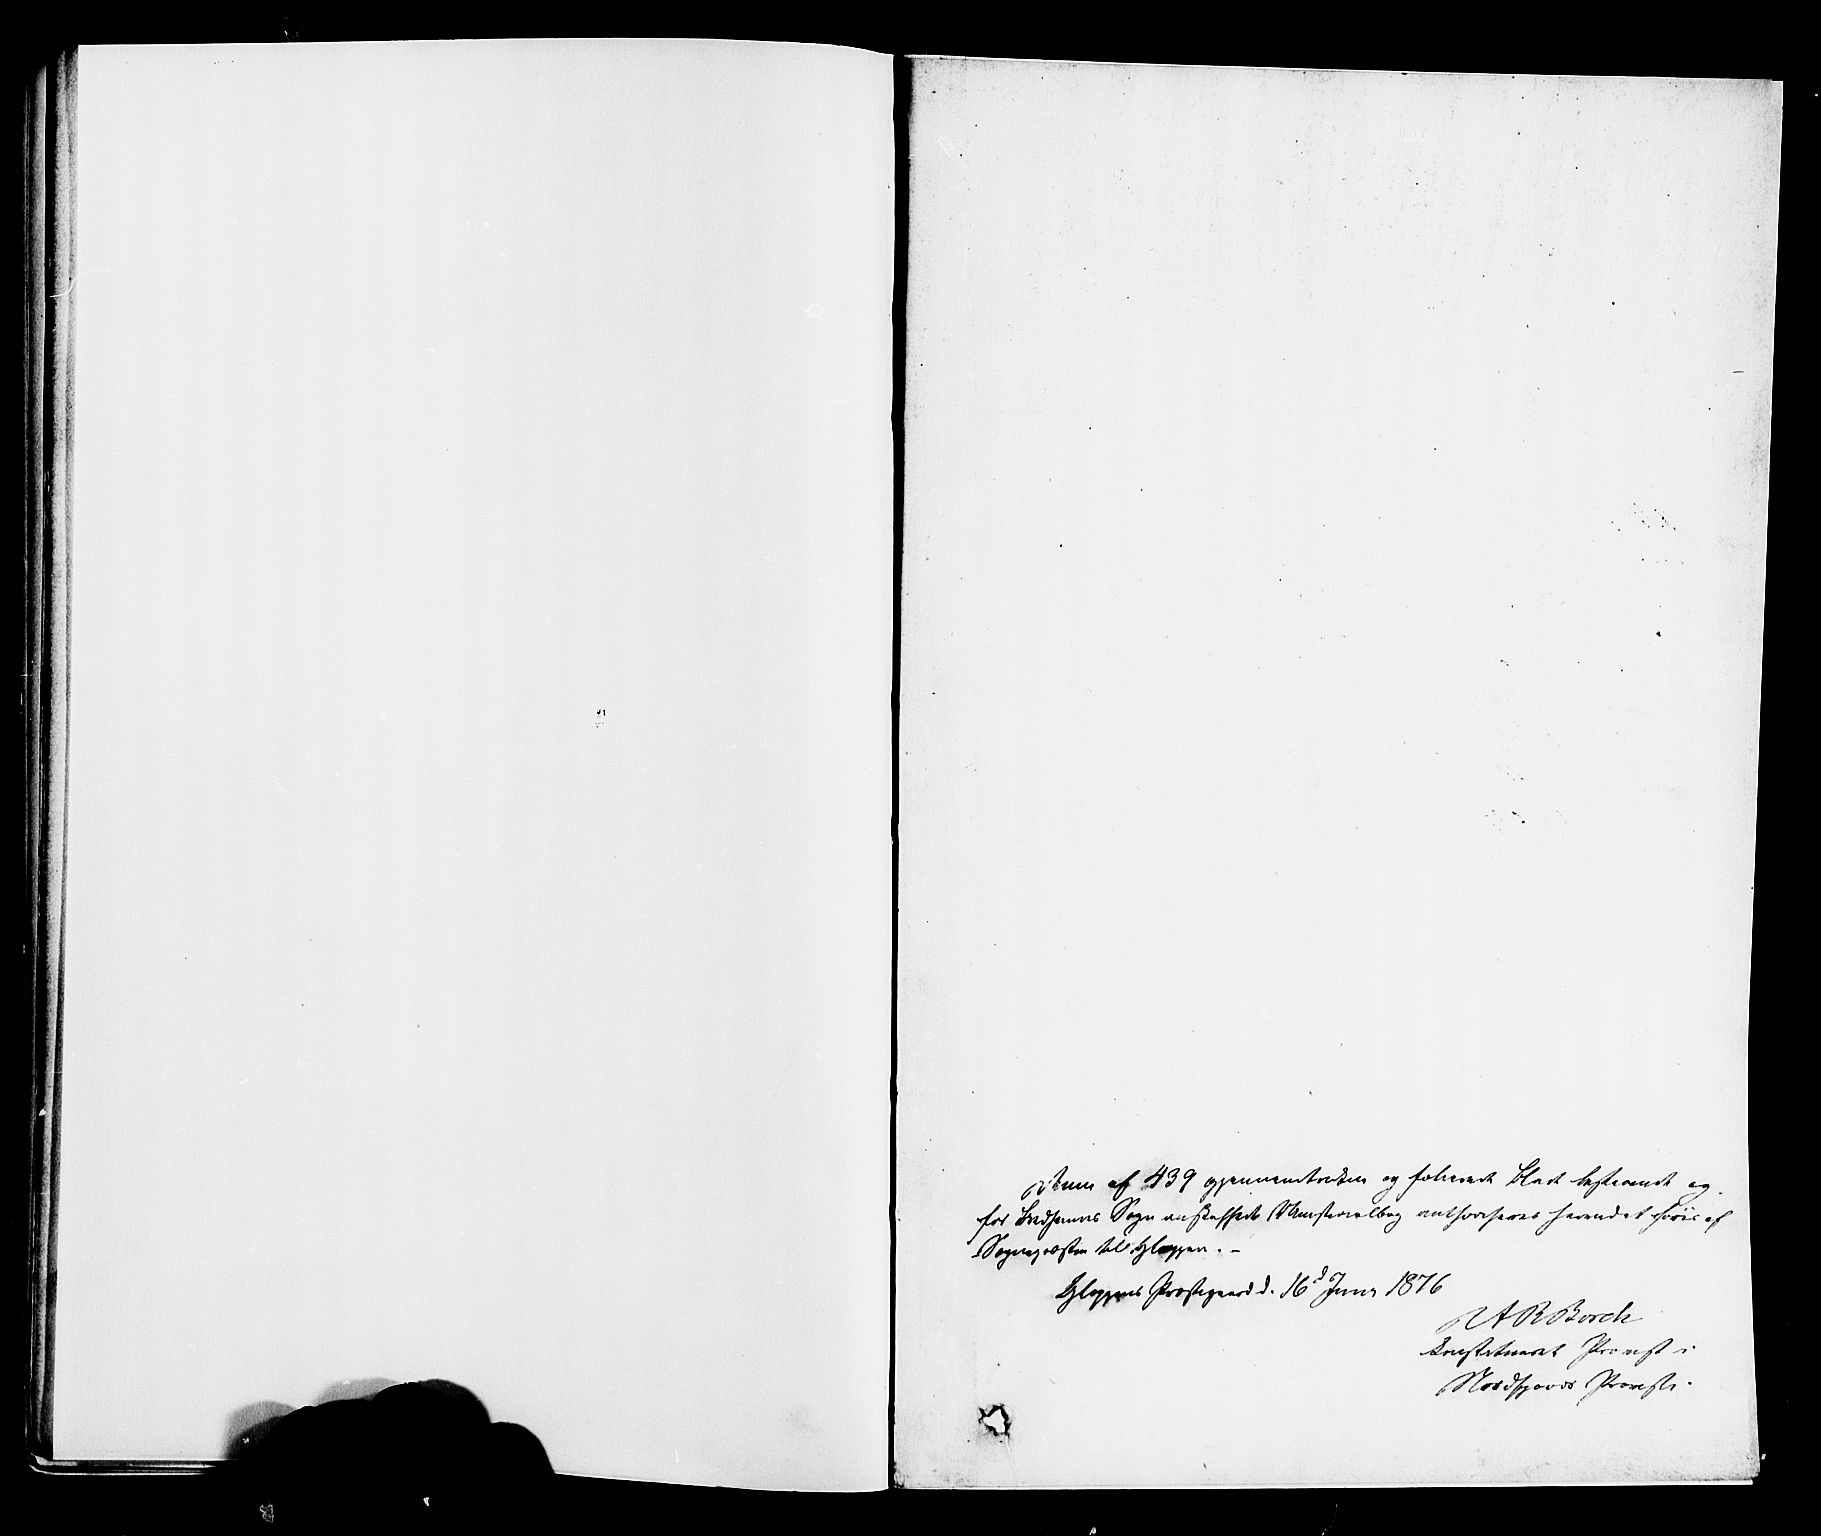 Denne af 439 gjennemtrukne og folierede Blade bestaaende og
for Bredheims Sogn anskaffede Ministerialbog authoriseres herved til Brug af
Sognepræsten til Gloppen. –
Gloppens Præstegaard d. 16d Juni 1876
A R Borch
konstitueret Provst i
Nordfjords Provsti.